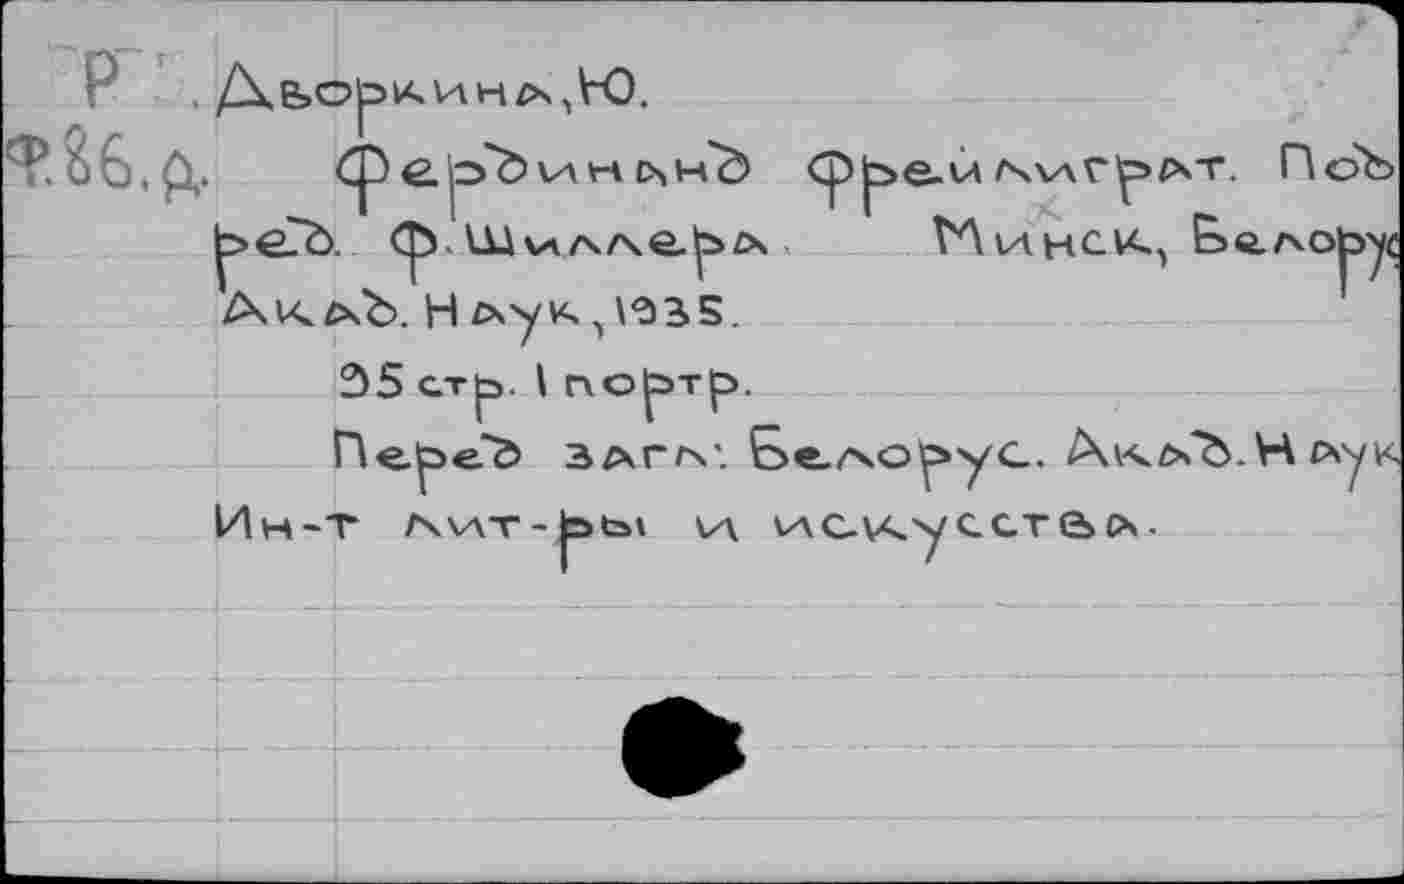 Р Дворкина, Ю.
Ф.86.д. Фердинанд Фрейлиграт. Под
ред. Ф. Шиллера. Минск, Белорус
Акад. Наук, 1935.
35 стр. 1 портр.
Перед загл: Белорус. Акад. Наук
Ин-т лит-ры и искусства.